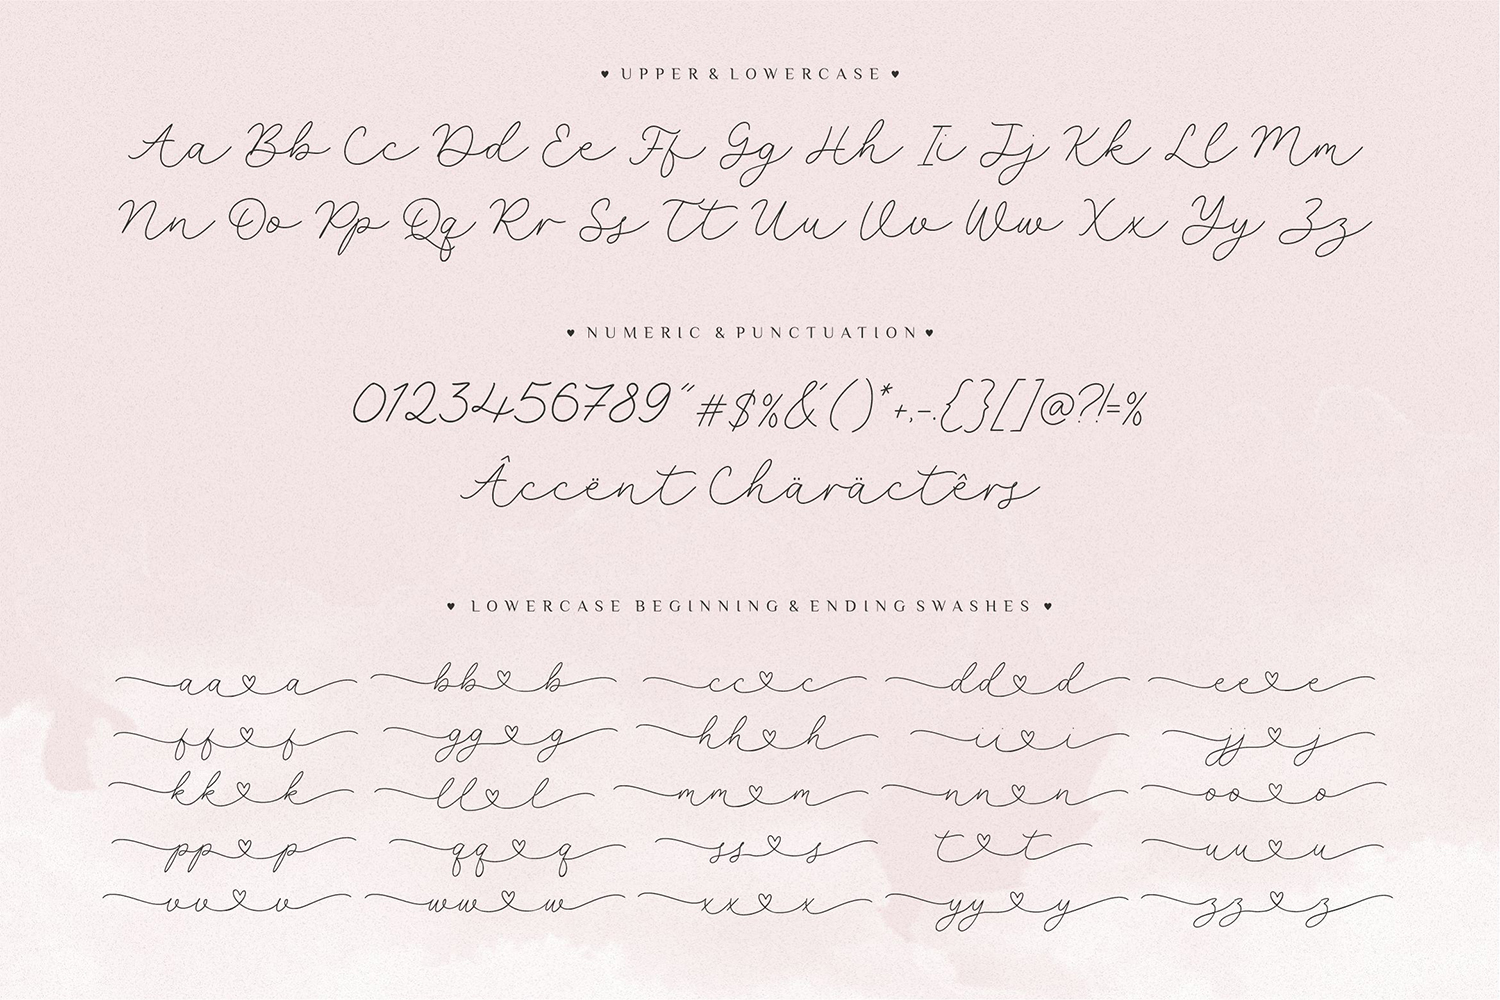 ♥ UPPER & LOWERCASE ♥
Aa Bb Cc Dd Ee Ff Gg Hh Ii Jj Kk Ll Mm
Nn Oo Pp Qq Rr Ss Tt Uu Vv Ww Xx Yy Zz
♥ NUMERIC & PUNCTUATION ♥
0123456789"#$%&'()*+,-.{}[]@?!=%
Âccënt Chäräctêrs
♥ LOWERCASE BEGINNING & ENDING SWASHES ♥
aa♡a bb♡b cc♡c dd♡d ee♡e
ff♡f gg♡g hh♡h ii♡i jj♡j
kk♡k ll♡l mm♡m nn♡n oo♡o
pp♡p qq♡q ss♡s t♡t uu♡u
vv♡v ww♡w xx♡x yy♡y zz♡z